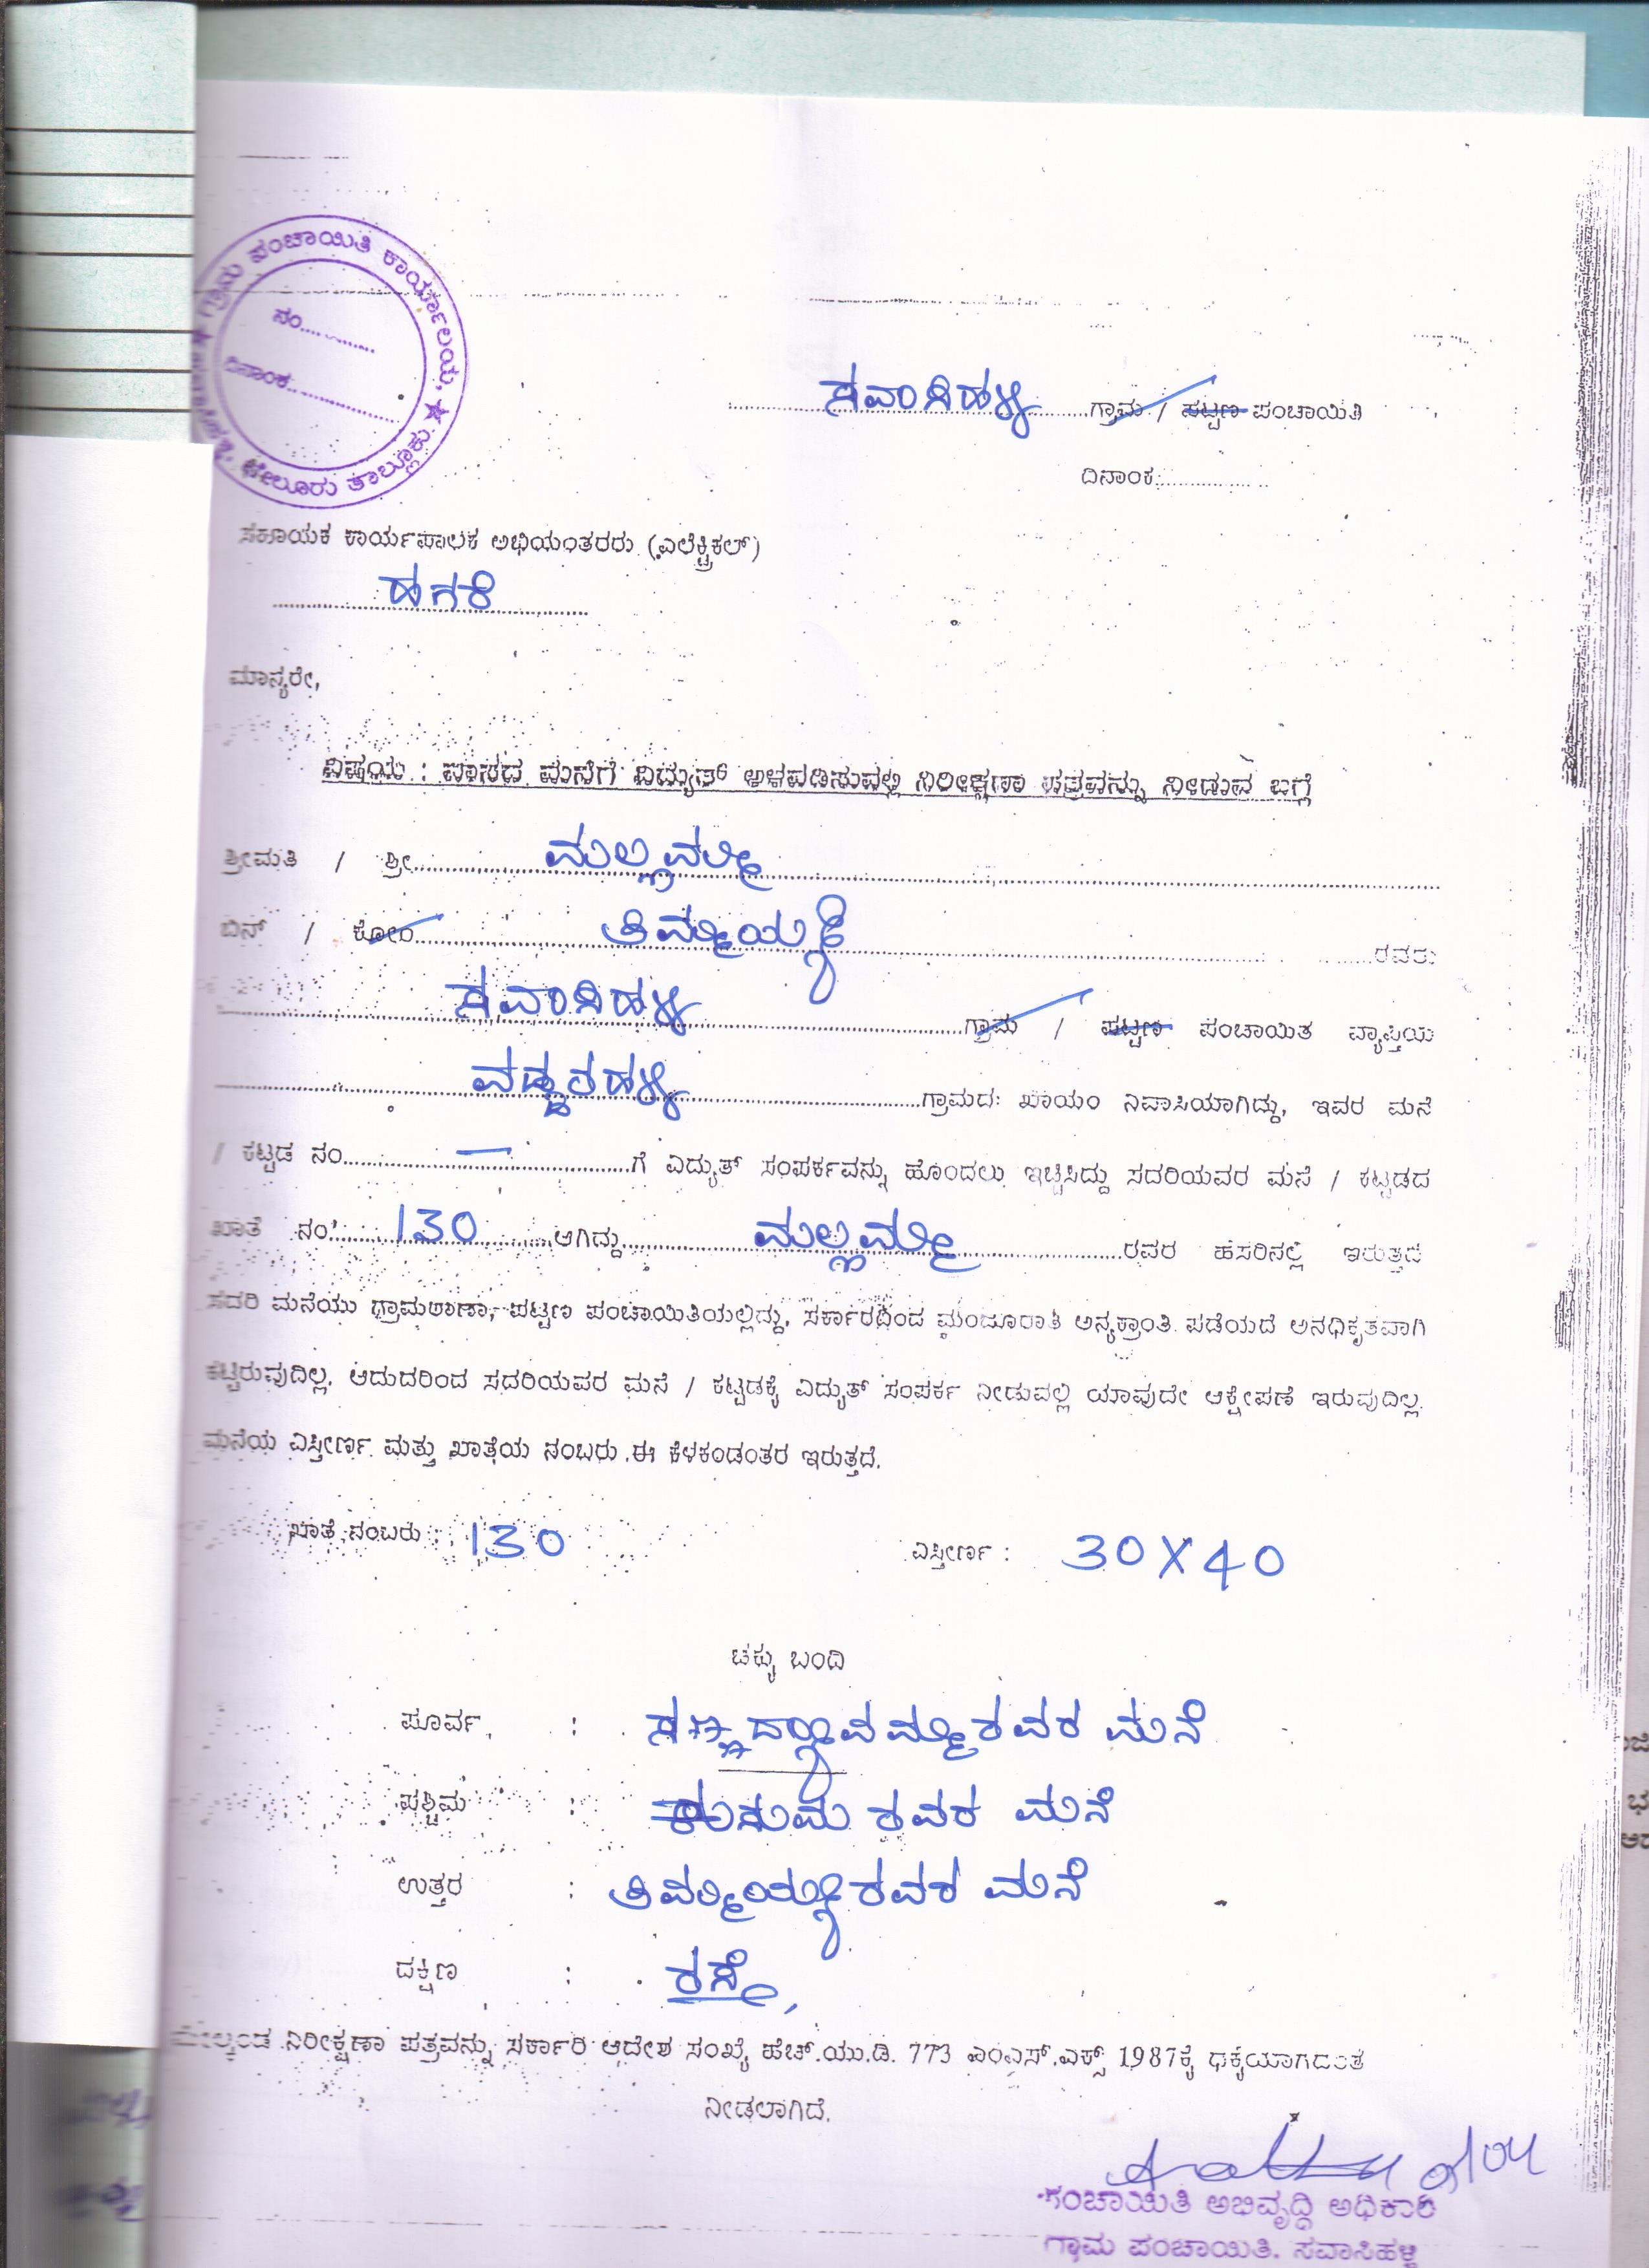 ಗ್ರಾಮ ಪಂಚಾಯಿತಿ ಕಾರ್ಯಾಲಯ, ★ ಬೇಲೂರು ತಾಲ್ಲೂಕು
ನಂ..........
ದಿನಾಂಕ..............
ಸವಾಸಿಹಳ್ಳಿ ಗ್ರಾಮ / ಪಟ್ಟಣ ಪಂಚಾಯಿತಿ
ದಿನಾಂಕ................
ಸಹಾಯಕ ಕಾರ್ಯಪಾಲಕ ಅಭಿಯಂತರರು (ಎಲೆಕ್ಟ್ರಿಕಲ್)
ಹಗರೆ
ಮಾನ್ಯರೇ,
ವಿಷಯ : ವಾಸದ ಮನೆಗೆ ವಿದ್ಯುತ್ ಅಳವಡಿಸುವಲ್ಲಿ ನಿರೀಕ್ಷಣಾ ಪತ್ರವನ್ನು ನೀಡುವ ಬಗ್ಗೆ
ಶ್ರೀಮತಿ / ಶ್ರೀ..........ಮಲ್ಲಮ್ಮ
ಬಿನ್ / ಕೋಂ..........ತಿಮ್ಮಯ್ಯ..........ರವರು
ಸವಾಸಿಹಳ್ಳಿ..........ಗ್ರಾಮ / ಪಟ್ಟಣ ಪಂಚಾಯಿತ ವ್ಯಾಪ್ತಿಯ
ವಡ್ಡರಹಳ್ಳಿ..........ಗ್ರಾಮದ ಖಾಯಂ ನಿವಾಸಿಯಾಗಿದ್ದು, ಇವರ ಮನೆ
/ ಕಟ್ಟಡ ನಂ..........—..........ಗೆ ವಿದ್ಯುತ್ ಸಂಪರ್ಕವನ್ನು ಹೊಂದಲು ಇಚ್ಚಿಸಿದ್ದು ಸದರಿಯವರ ಮನೆ / ಕಟ್ಟಡದ
ಖಾತೆ ನಂ..........130..........ಆಗಿದ್ದು..........ಮಲ್ಲಮ್ಮ..........ರವರ ಹೆಸರಿನಲ್ಲಿ ಇರುತ್ತದೆ
ಸದರಿ ಮನೆಯು ಗ್ರಾಮಠಾಣಾ, ಪಟ್ಟಣ ಪಂಚಾಯಿತಿಯಲ್ಲಿದ್ದು, ಸರ್ಕಾರದಿಂದ ಮಂಜೂರಾತಿ ಅನ್ಯಕ್ರಾಂತಿ ಪಡೆಯದೆ ಅನಧಿಕೃತವಾಗಿ
ಕಟ್ಟಿರುವುದಿಲ್ಲ. ಆದುದರಿಂದ ಸದರಿಯವರ ಮನೆ / ಕಟ್ಟಡಕ್ಕೆ ವಿದ್ಯುತ್ ಸಂಪರ್ಕ ನೀಡುವಲ್ಲಿ ಯಾವುದೇ ಆಕ್ಷೇಪಣೆ ಇರುವುದಿಲ್ಲ.
ಮನೆಯ ವಿಸ್ತೀರ್ಣ ಮತ್ತು ಖಾತೆಯ ನಂಬರು ಈ ಕೆಳಕಂಡಂತರ ಇರುತ್ತದೆ.
ಖಾತೆ ನಂಬರು : 130 ವಿಸ್ತೀರ್ಣ : 30 X 40
ಚಕ್ಕು ಬಂದಿ
ಪೂರ್ವ : ಸಣ್ಣದ್ಯಾವಮ್ಮರವರ ಮನೆ
ಪಶ್ಚಿಮ : ಕುಸುಮ ರವರ ಮನೆ
ಉತ್ತರ : ತಿಮ್ಮಯ್ಯರವರ ಮನೆ
ದಕ್ಷಿಣ : ರಸ್ತೆ,
ಮೇಲ್ಕಂಡ ನಿರೀಕ್ಷಣಾ ಪತ್ರವನ್ನು ಸರ್ಕಾರಿ ಆದೇಶ ಸಂಖ್ಯೆ ಹೆಚ್.ಯು.ಡಿ. 773 ಎಂಎಸ್.ಎಕ್ಸ್ 1987ಕ್ಕೆ ಧಕ್ಕೆಯಾಗದಂತೆ
ನೀಡಲಾಗಿದೆ.
ಪಂಚಾಯಿತಿ ಅಭಿವೃದ್ಧಿ ಅಧಿಕಾರಿ
ಗ್ರಾಮ ಪಂಚಾಯಿತಿ. ಸವಾಸಿಹಳ್ಳಿ